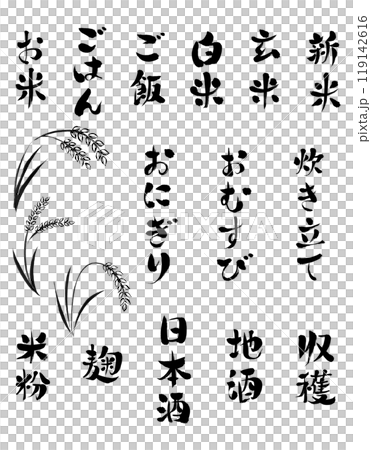 新米
玄米
白米
ご飯
ごはん
お米
炊き立て
おむすび
おにぎり
収穫
地酒
日本酒
麹
米粉
119142616